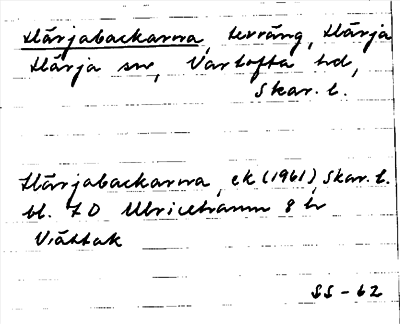 Härjabackarna, terräng, Härja
Härja sn, Vartofta hd,
Skar. l.
Härjabackarna, ek (1961), Skar. l.
bl. 7 D Ulricehamn 8 h
Viättak
SS-62